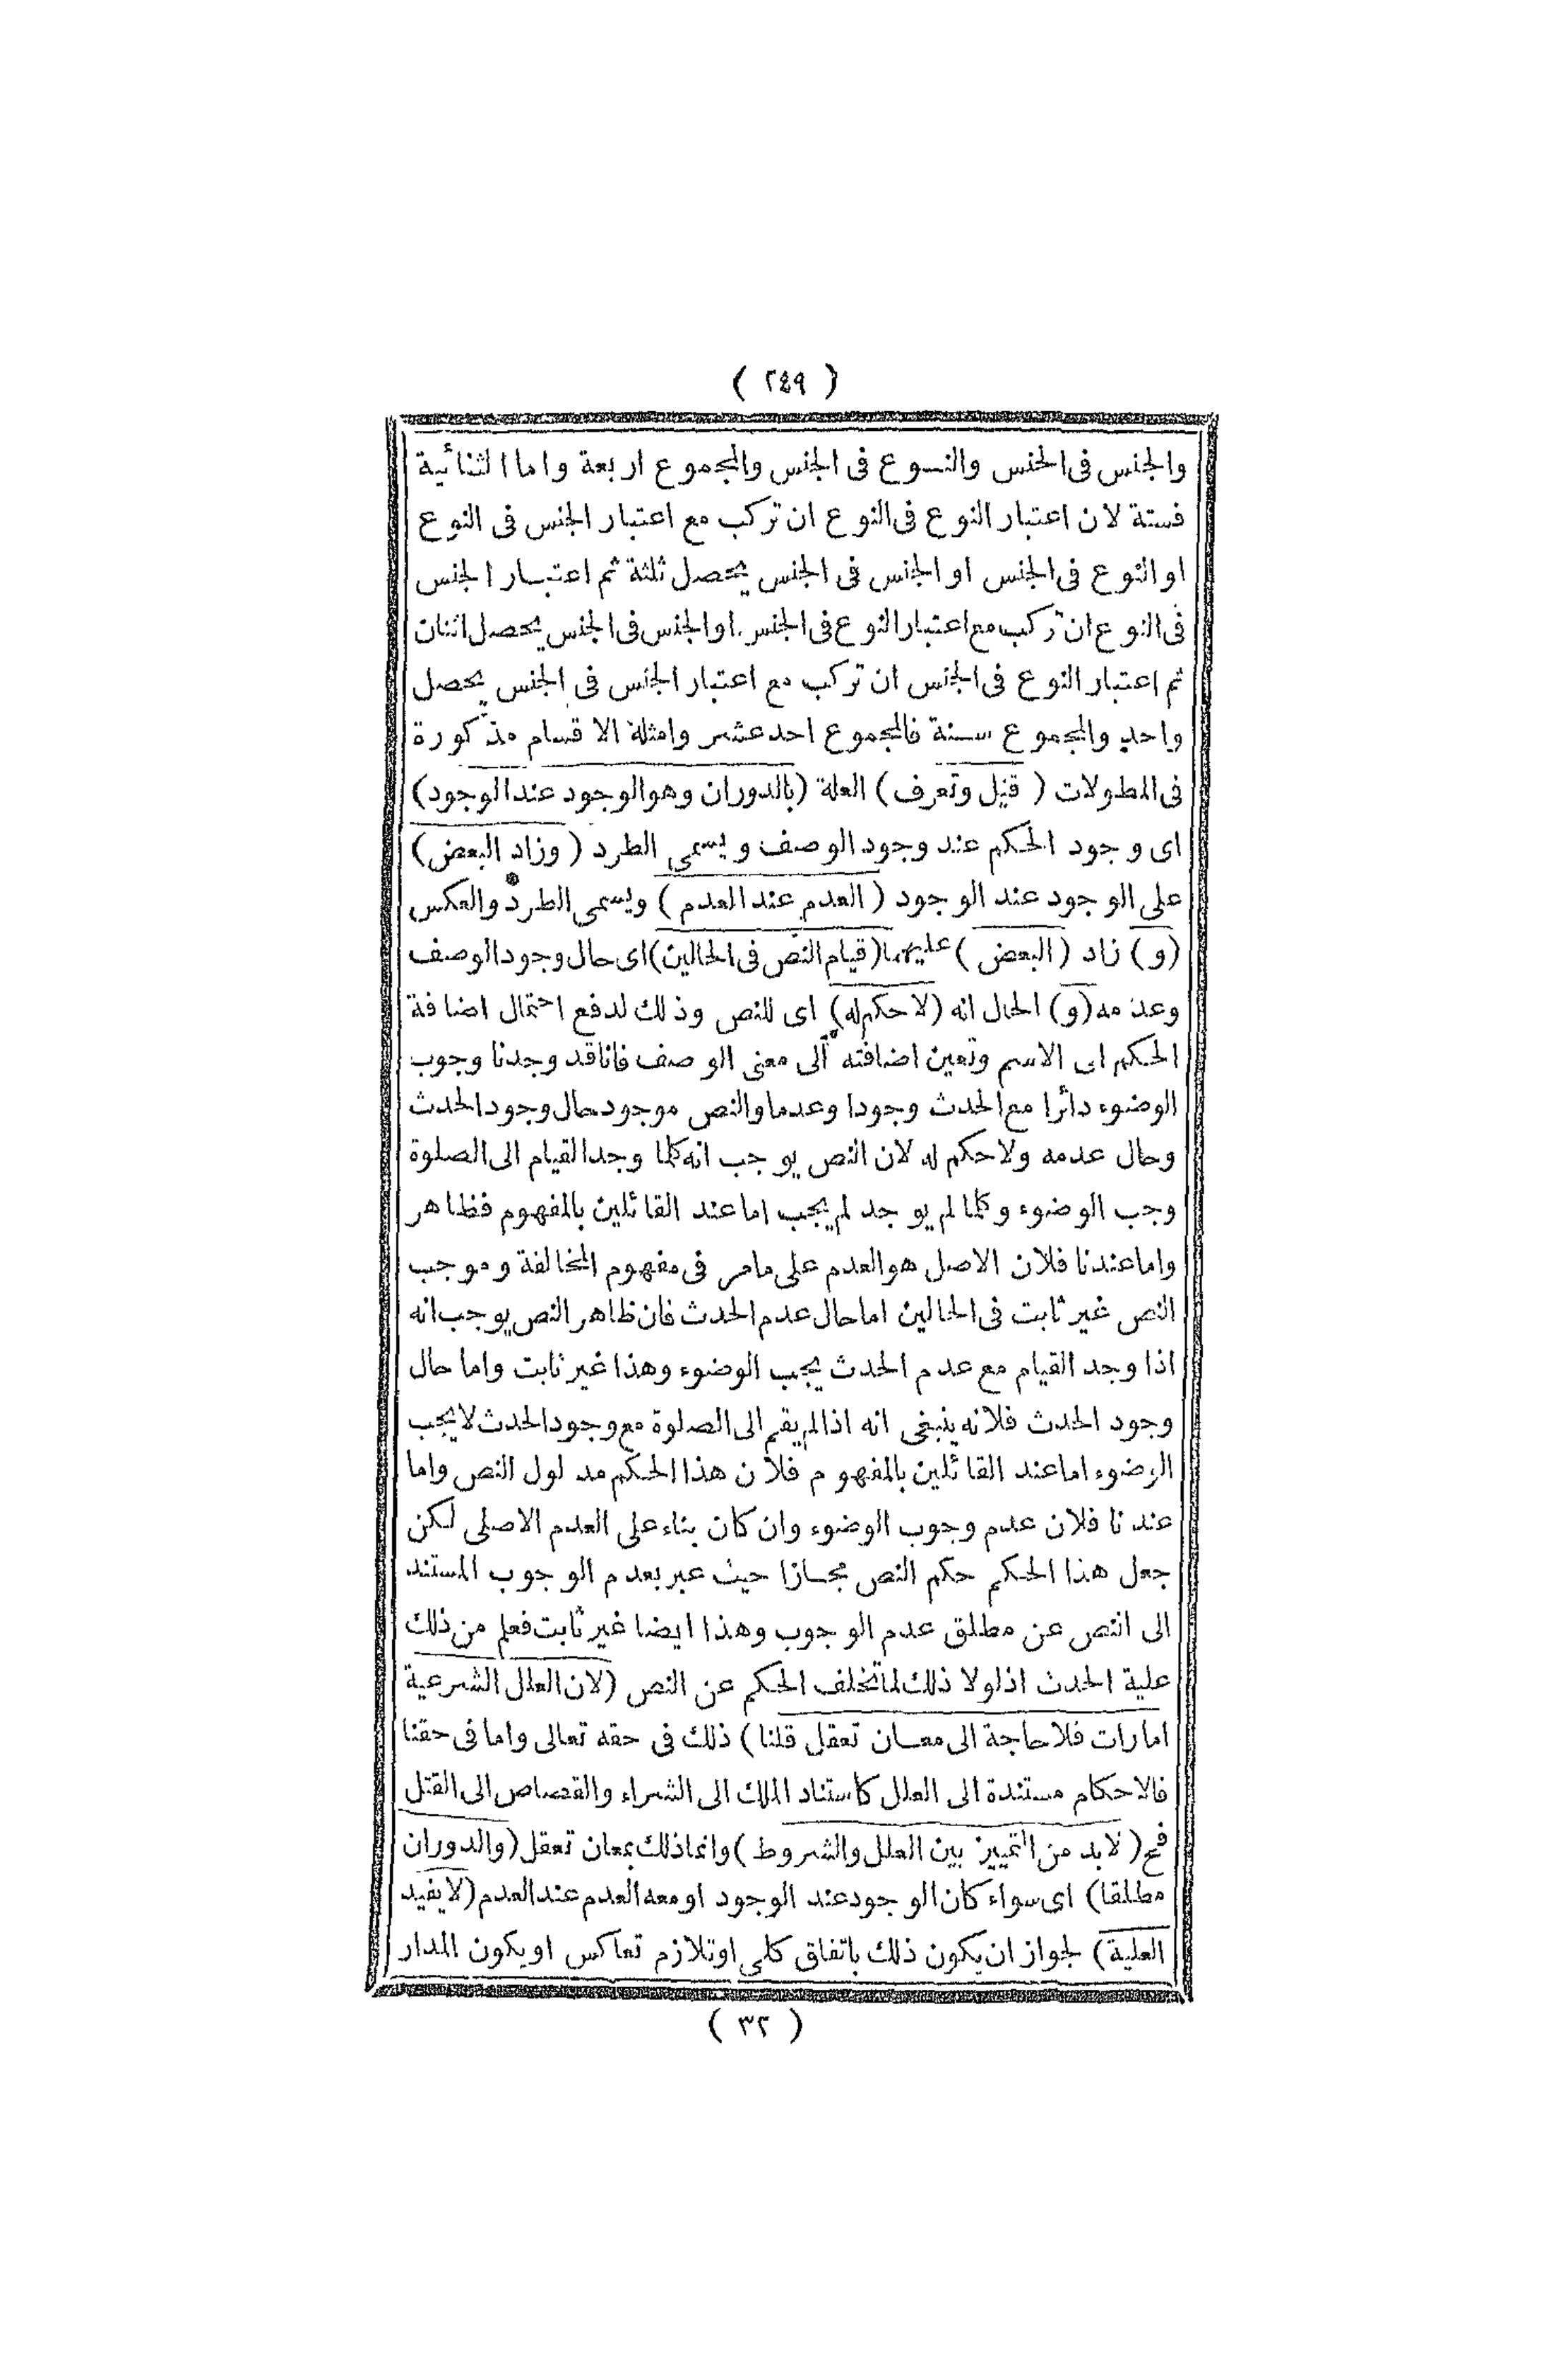 ( ٢٤٩ )
والجنس فى الجنس والنوع فى الجنس والمجموع اربعة واما الثنائية
فستة لان اعتبار النوع فى النوع ان تركب مع اعتبار الجنس فى النوع
او النوع فى الجنس او الجنس فى الجنس يحصل ثلثة ثم اعتبار الجنس
فى النوع ان تركب مع اعتبار النوع فى الجنس او الجنس فى الجنس يحصل اثنان
ثم اعتبار النوع فى الجنس ان تركب مع اعتبار الجنس فى الجنس يحصل
واحد والمجموع ستة فالمجموع احد عشر وامثلة الاقسام مذكورة
فى المطولات ( قيل وتعرف ) العلة (بالدوران وهو الوجود عند الوجود)
اى وجود الحكم عند وجود الوصف ويسمى الطرد ( وزاد البعض )
على الوجود عند الوجود ( العدم عند العدم ) ويسمى الطرد والعكس
(و) زاد ( البعض ) عليهما (قيام النص فى الحالين) اى حال وجود الوصف
وعدمه (و) الحال انه (لا حكم له) اى للنص وذلك لدفع احتمال اضافة
الحكم الى الاسم وتعين اضافته الى معنى الوصف فانا قد وجدنا وجوب
الوضوء دائرا مع الحدث وجودا وعدما والنص موجود حال وجود الحدث
وحال عدمه ولا حكم له لان النص يوجب انه كلما وجد القيام الى الصلوة
وجب الوضوء وكلما لم يوجد لم يجب اما عند القائلين بالمفهوم فظاهر
واما عندنا فلان الاصل هو العدم على مامر فى مفهوم المخالفة وموجب
النص غير ثابت فى الحالين اما حال عدم الحدث فان ظاهر النص يوجب انه
اذا وجد القيام مع عدم الحدث يجب الوضوء وهذا غير ثابت واما حال
وجود الحدث فلانه ينبغى انه اذا لم يقم الى الصلوة مع وجود الحدث لا يجب
الوضوء اما عند القائلين بالمفهوم فلان هذا الحكم مدلول النص واما
عندنا فلان عدم وجوب الوضوء وان كان بناء على العدم الاصلى لكن
جعل هذا الحكم حكم النص مجازا حيث عبر بعدم الوجوب المستند
الى النص عن مطلق عدم الوجوب وهذا ايضا غير ثابت فعلم من ذلك
علية الحدث اذ لولا ذلك لما تخلف الحكم عن النص (لان العلل الشرعية
امارات فلا حاجة الى معان تعقل قلنا ) ذلك فى حقه تعالى واما فى حقنا
فالاحكام مستندة الى العلل كاستناد الملك الى الشراء والقصاص الى القتل
فح ( لابد من التمييز بين العلل والشروط ) وانما ذلك بمعان تعقل (والدوران
مطلقا) اى سواء كان الوجود عند الوجود او معه العدم عند العدم (لا يفيد
العلية) لجواز ان يكون ذلك باتفاق كلى او تلازم تعاكس او يكون المدار
( ٣٢ )